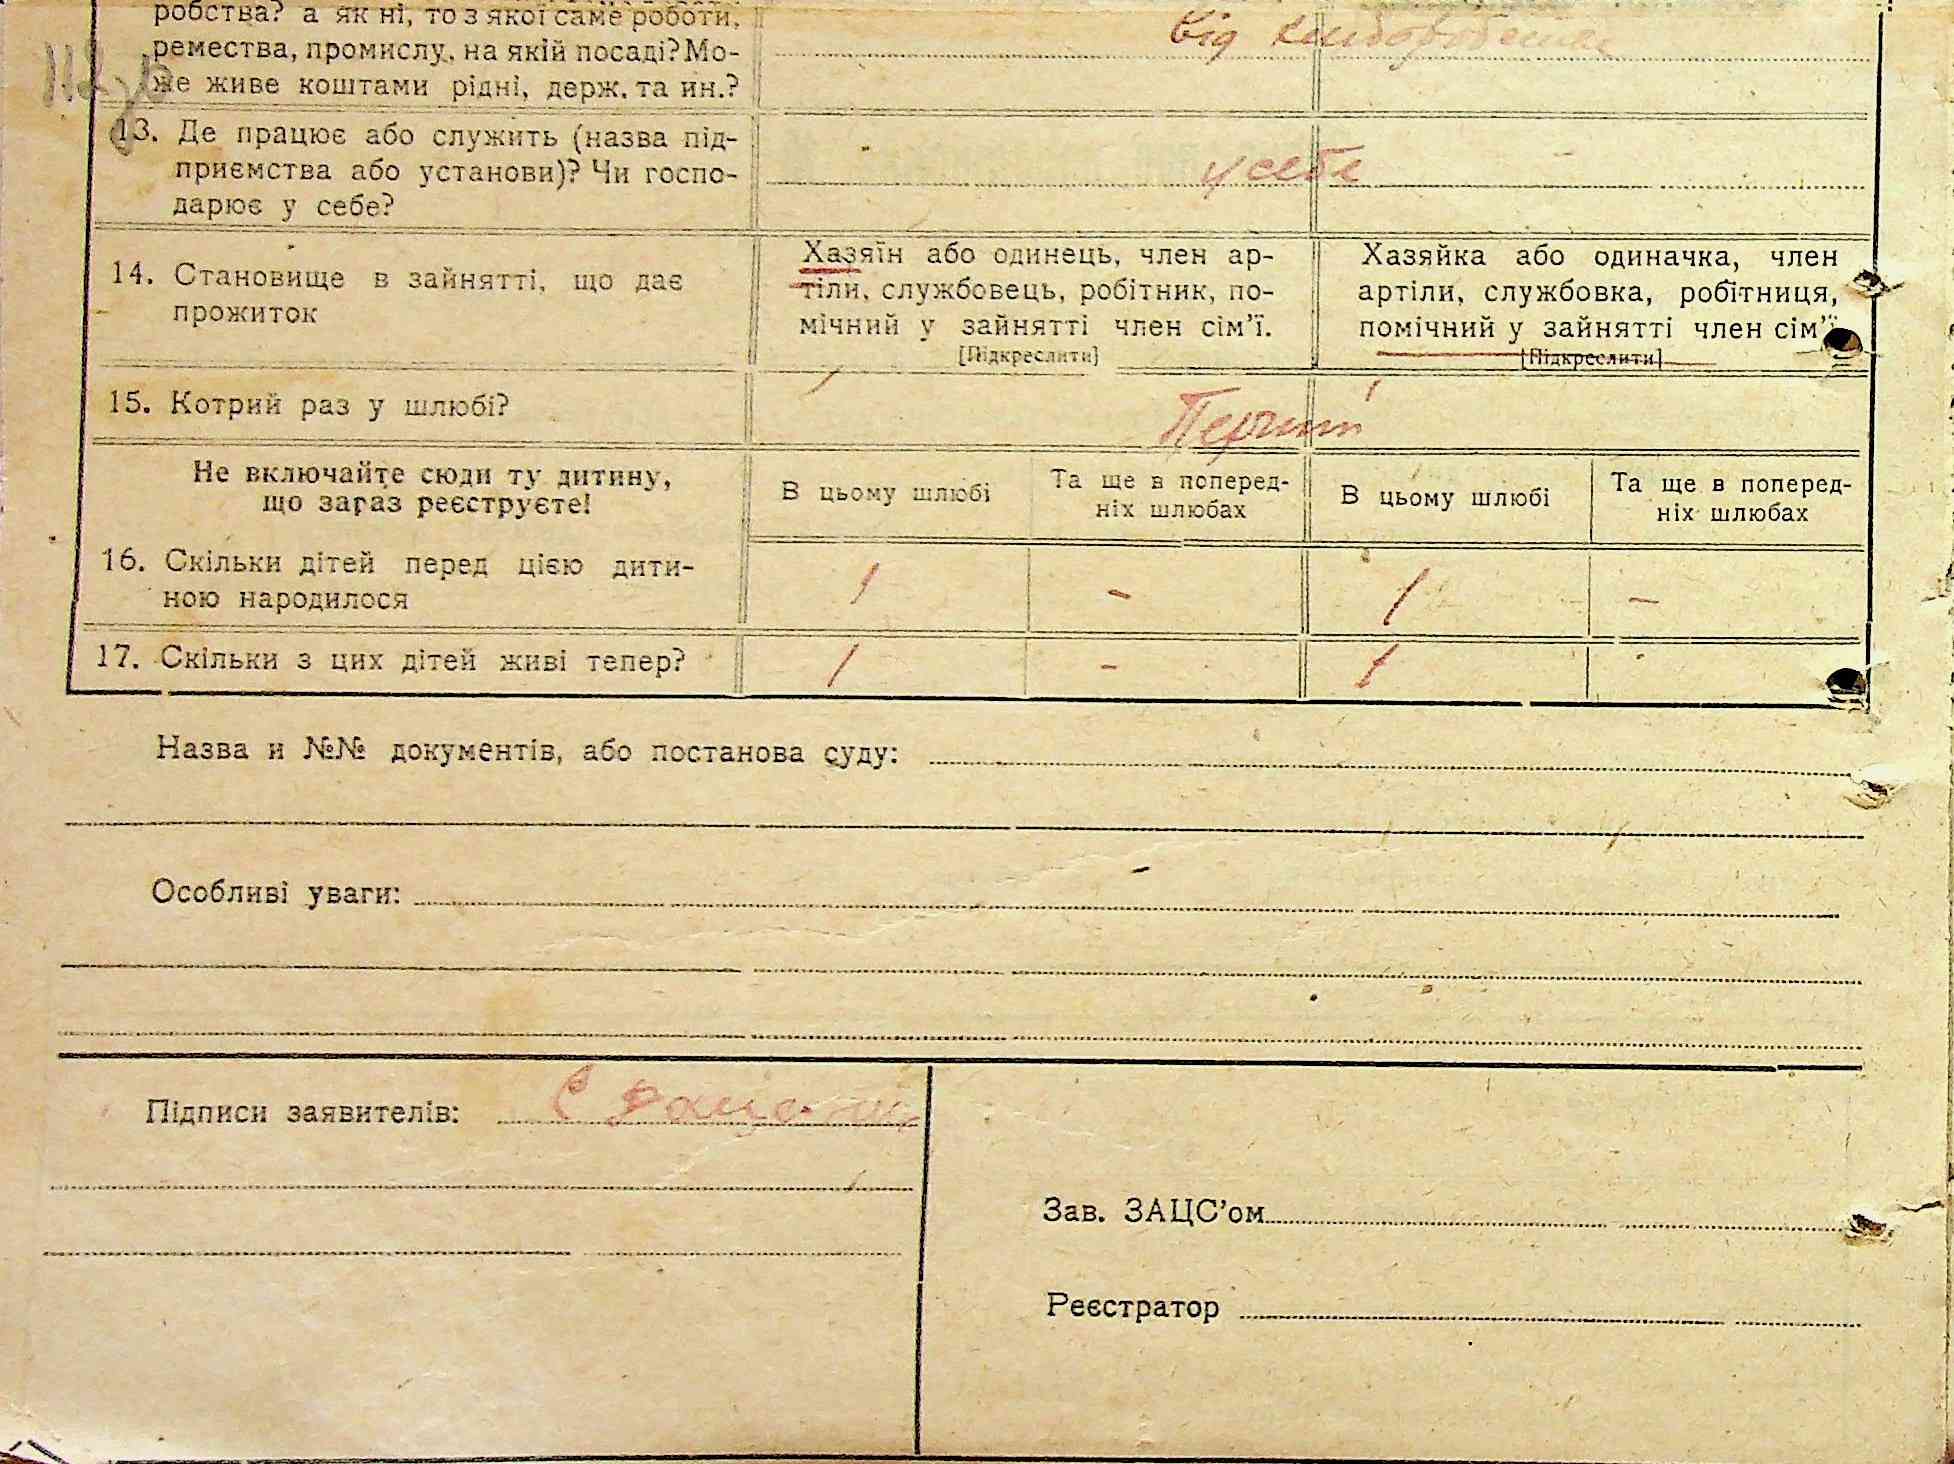 робства? а як ні, то з якої саме роботи,
ремества, промислу, на якій посаді? Мо-
же живе коштами рідні, держ. та ин.?
від
13. Де працює або служить (назва під-
приємства або установи)? Чи госпо-
дарює у себе?
у себе
14. Становище в зайнятті, що дає
прожиток
Хазяїн або одинець, член ар-
тіли, службовець, робітник, по-
мічний у зайнятті член сім’ї.
[Підкреслити]
Хазяйка або одиначка, член
артіли, службовка, робітниця,
помічний у зайнятті член сім’ї
[Підкреслити]
15. Котрий раз у шлюбі?
Перший
Не включайте сюди ту дитину,
що зараз реєструєте!
В цьому шлюбі
Та ще в поперед-
ніх шлюбах
В цьому шлюбі
Та ще в поперед-
ніх шлюбах
16. Скільки дітей перед цією дити-
ною народилося
1 - 1 -
17. Скільки з цих дітей живі тепер?
1 - 1
Назва и №№ документів, або постанова суду:
Особливі уваги:
Підписи заявителів:
Зав. ЗАЦС’ом
Реєстратор